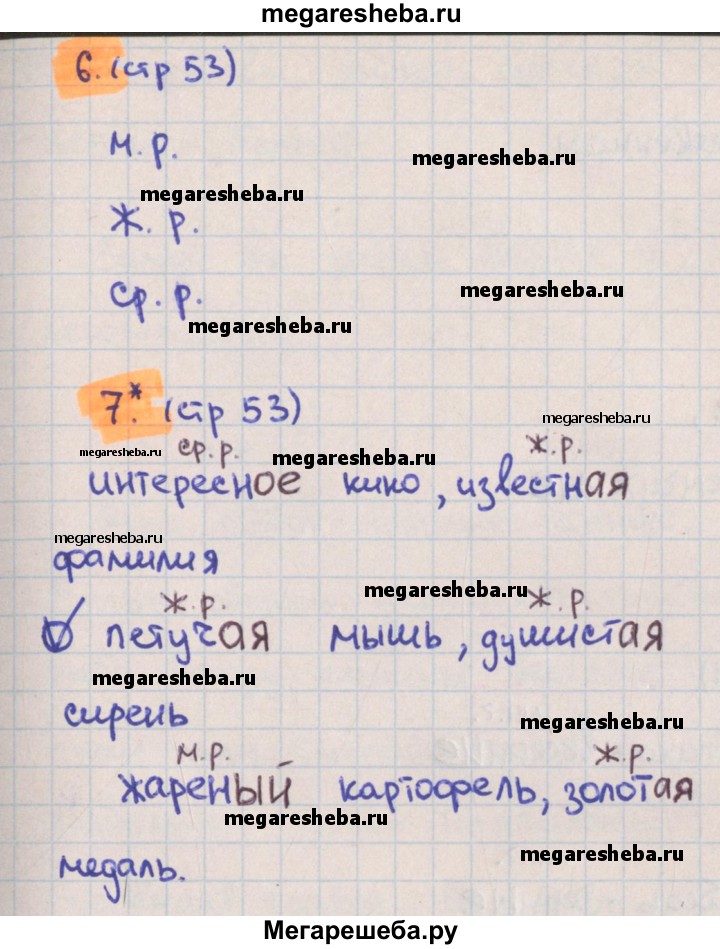 megaresheba.ru
6. (стр 53)
м. р.
megaresheba.ru
megaresheba.ru
ж. р.
ср. р.
megaresheba.ru
megaresheba.ru
7*. (стр 53)
megaresheba.ru
megaresheba.ru ср. р. megaresheba.ru ж. р.
интересное кино, известная
megaresheba.ru
фамилия
megaresheba.ru
ж. р. ж. р.
летучая мышь, душистая
megaresheba.ru
сирень
megaresheba.ru
м. р. ж. р.
жареный картофель, золотая
megaresheba.ru
megaresheba.ru
медаль.
Мегарешеба.ру